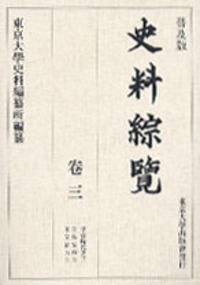 普及版
史料綜覽
卷三
東京大學史料編纂所編纂
東京大學出版會發行